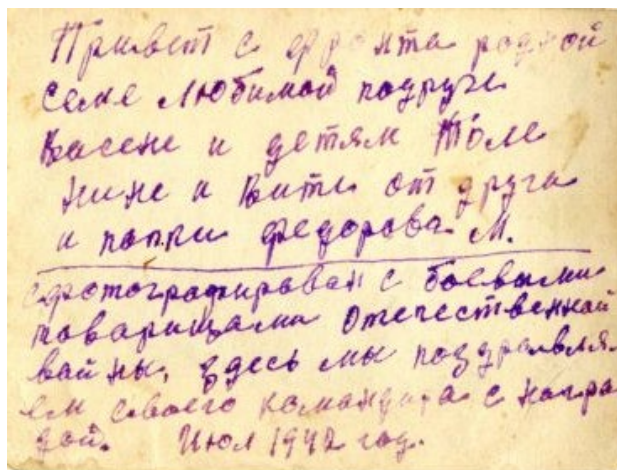 Привет с фронта родной
семе любимой подруге
Васене и детям Толе
Нине и Вите от друга
и паппи Федорова М.
сфотографирован с боевыми
товарищами Отечественной
вайны, здесь мы поздравля
ем своего командира с награ
дой. Июл 1942 год.